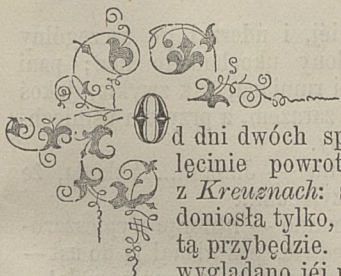 Od dni dwóch sp
lęcinie powrot
z Kreuznach:
doniosła tylko,
tą przybędzie.
wyglądano jéj